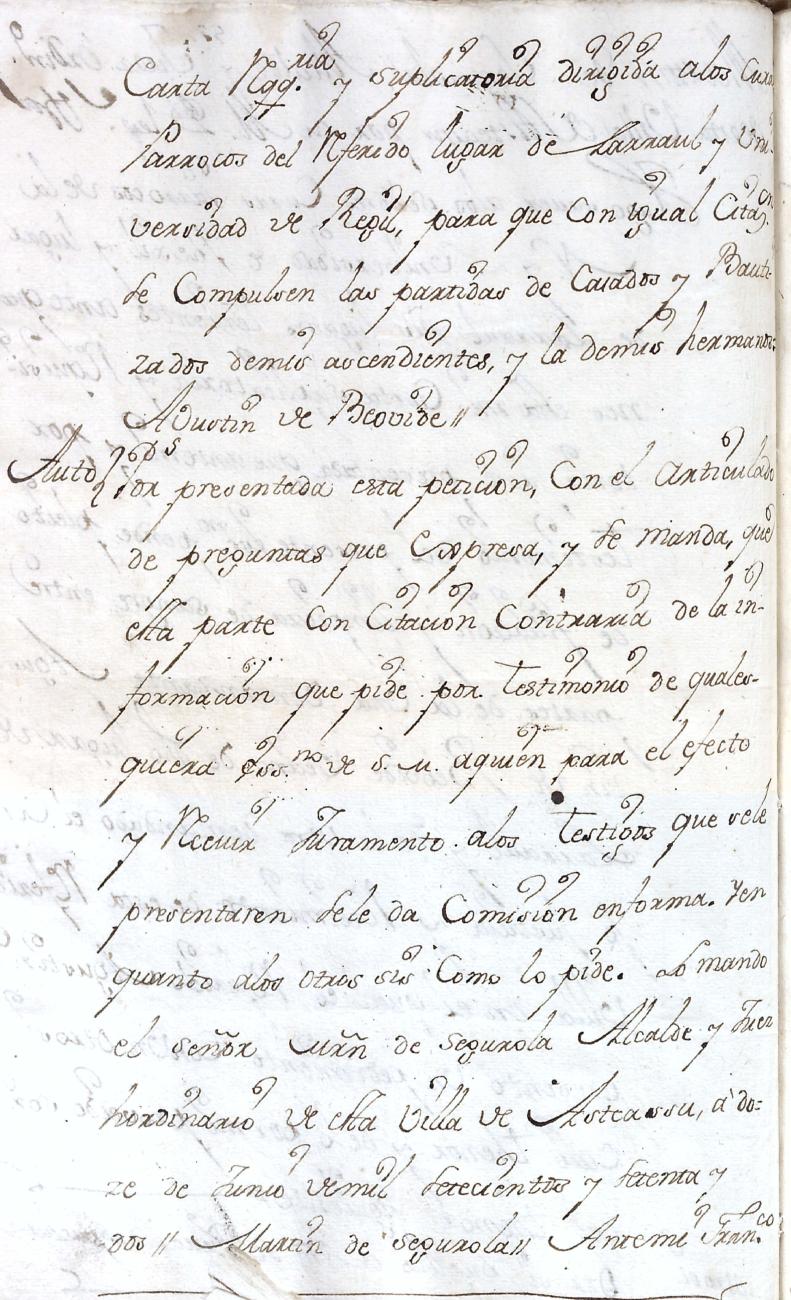 Carta Rqq.ria y suplicatoria dirigida alos Curas
Parrocos del Rferido lugar de Larraul y Uni-
versidad de Regil, para que Con igual Citaz.on
se Compulsen las partidas de Casados y Bauti-
zados demis ascendientes, y la demis hermanos:
Agustin de Beovide//
Auto } Por presentada esta peticion, Con el articulado
de preguntas que expresa, y se manda, que
esta parte Con Citacion Contraria de la in-
formacion que pide por Testimonio de quales-
quiera Ess.no de S. M. aquien para el efecto
y Recivir Juramento alos Testigos que sele
presentaren sele da Comision enforma. Yen
quanto alos otros sis Como lo pide. Lo mando
el señor Mrñ de Segurola Alcalde y Juez
hordinario de esta Villa de Asteassu, a do=
ze de Junio demil setecientos y setenta y
dos // Martin de Segurola // Antemi Fran.co